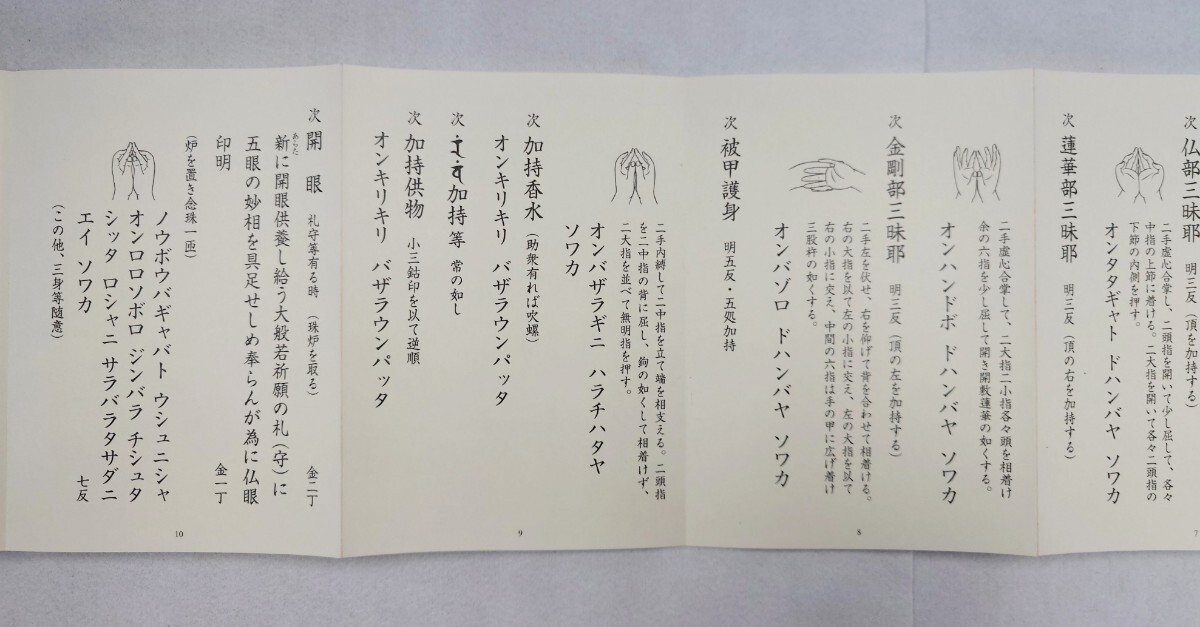 次 仏部三昧耶 明三反(頂を加持する)
二手虚心合掌し、二頭指を開いて少し屈して、各々
中指の上節に着ける。二大指を開いて各々二頭指の
下節の内側を押す。
オンタタギャト ドハンバヤ ソワカ
7
次 蓮華部三昧耶 明三反(頂の右を加持する)
二手虚心合掌して、二大指二小指各々頭を相着け
余の六指を少し屈して開き開敷蓮華の如くする。
オンハンドボ ドハンバヤ ソワカ
次 金剛部三昧耶 明三反(頂の左を加持する)
二手左を伏せ、右を仰げて背を合わせて相着ける。
右の大指を以て左の小指に交え、左の大指を以て
右の小指に交え、中間の六指は手の甲に広げ着け
三股杵の如くする。
オンバゾロ ドハンバヤ ソワカ
次 被甲護身 明五反・五処加持
8
二手内縛して二中指を立て端を相支える。二頭指
を二中指の背に屈し、鉤の如くして相着けず、
二大指を並べて無明指を押す。
オンバザラギニ ハラチハタヤ
ソワカ
次 加持香水(助衆有れば吹螺)
オンキリキリ バザラウンパッタ
次 加持等 常の如し
次 加持供物 小三鈷印を以て逆順
オンキリキリ バザラウンパッタ
9
次 開眼 札守等有る時(珠炉を取る) 金二丁
新に開眼供養し給う大般若祈願の札(守)に
あらた
五眼の妙相を具足せしめ奉らんが為に仏眼
印明 金一丁
(炉を置き念珠一匝)
ノウボウバギャバト ウシュニシャ
オンロロソボロ ジンバラ チシュタ
シッタ ロシャニ サラバラタサダニ
エイ ソワカ 七反
(この他、三身等随意)
10